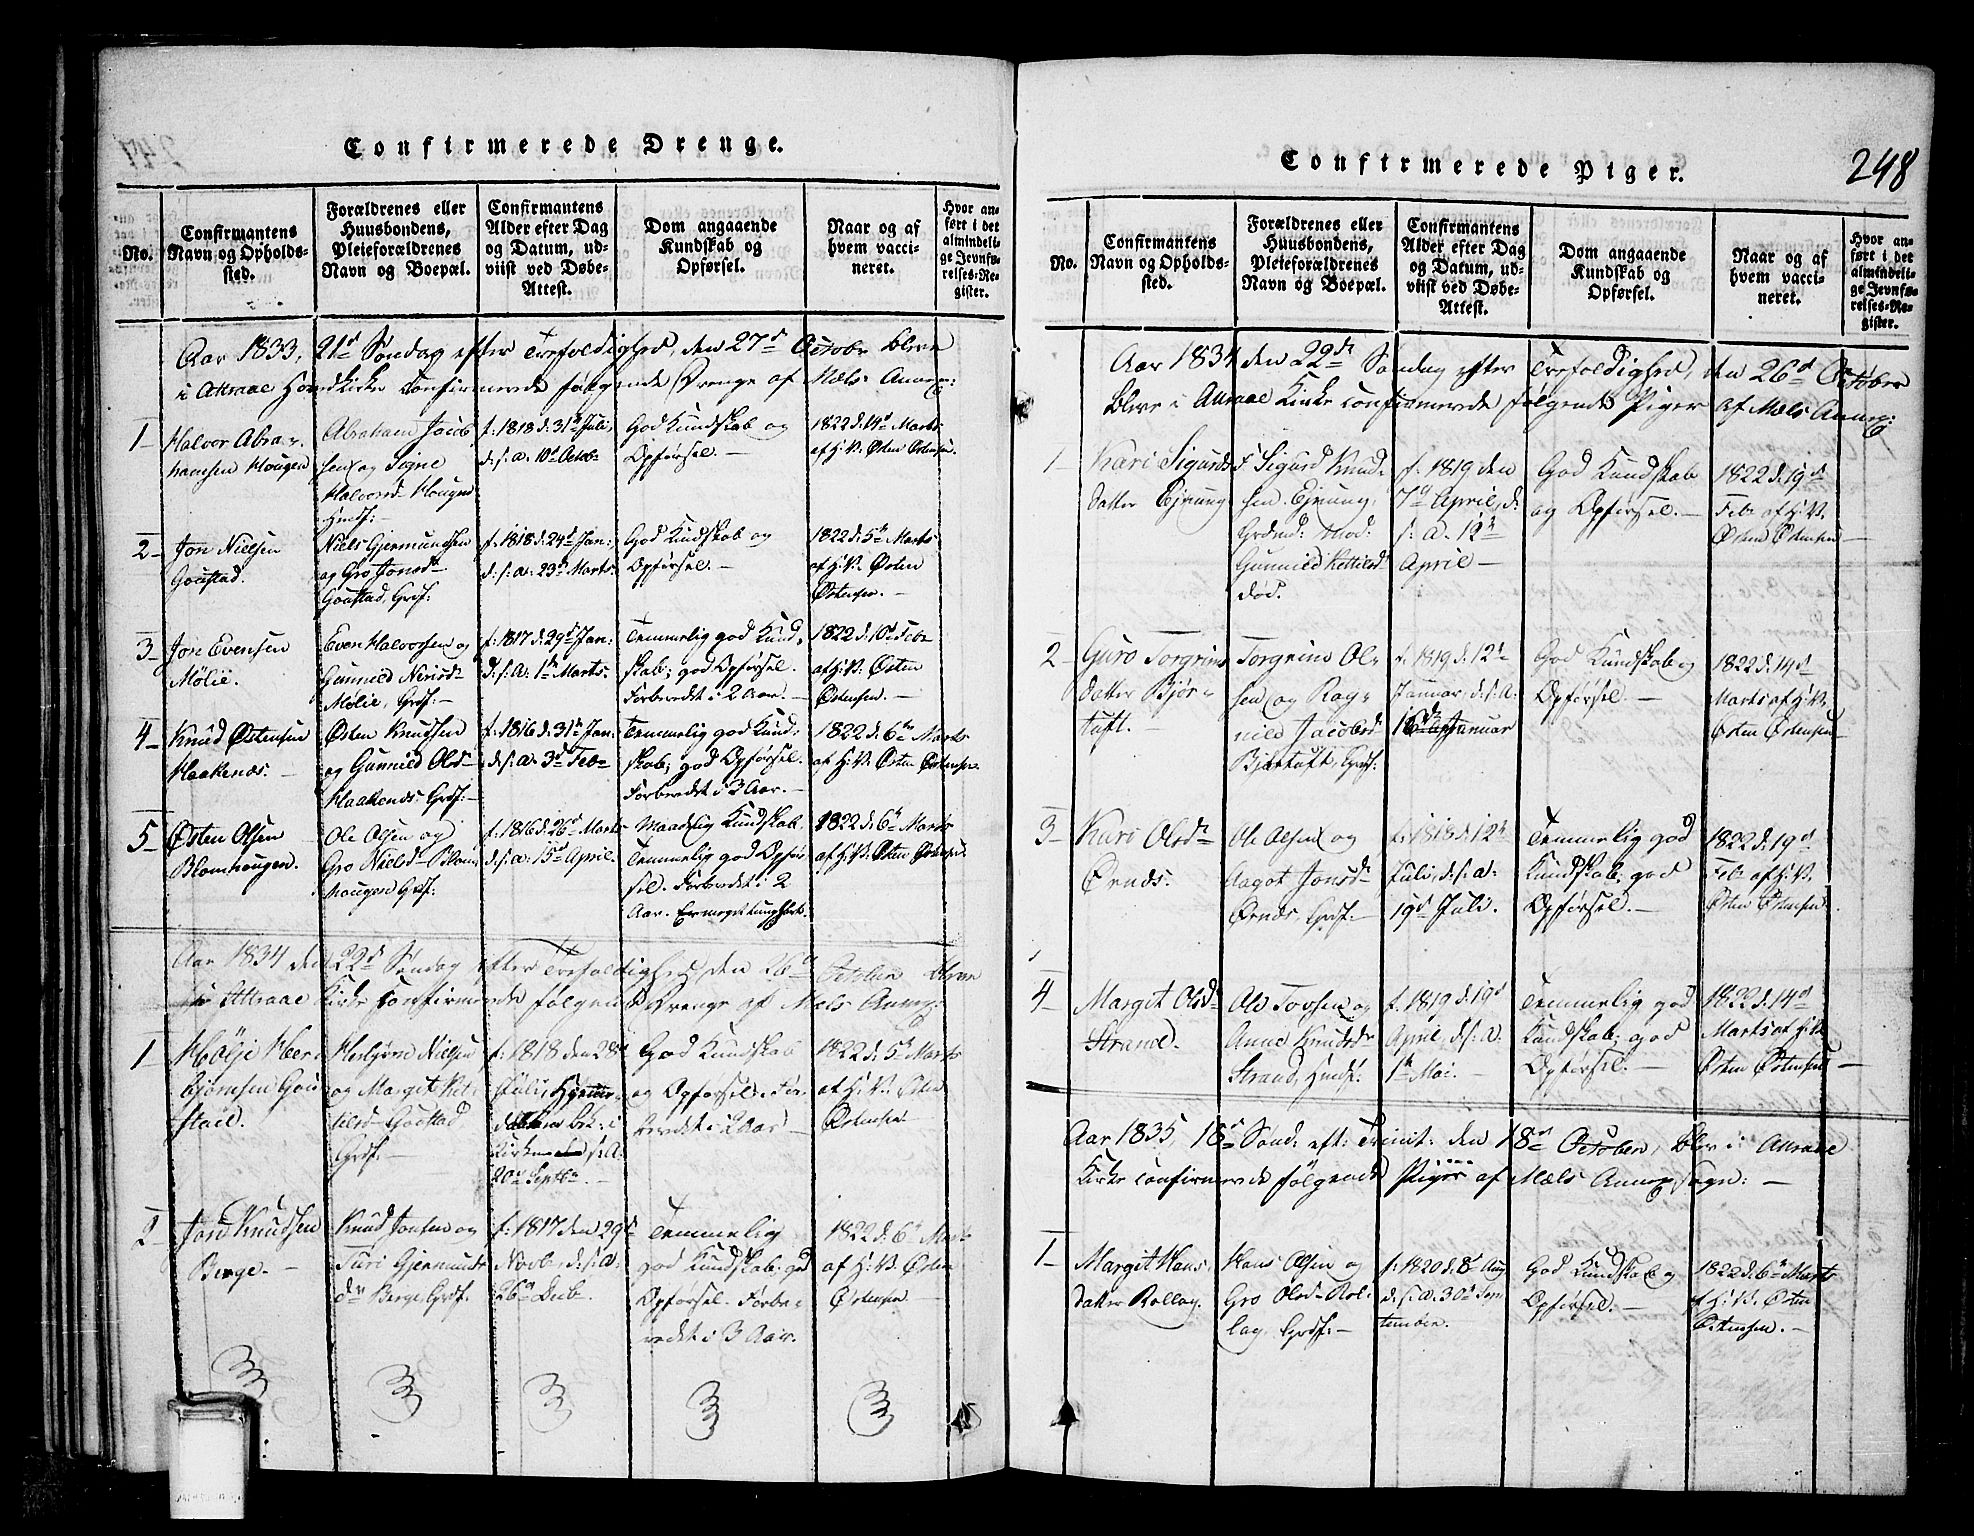 Confirmerede Drenge.
No.
Confirmantens
Navn og Opholds-
sted.
Forældrenes eller
Huusbondens,
Pleieforældrenes
Navn og Boepæl.
Confirmantens
Alder efter Dag
og Datum, ud-
viist ved Døbe-
Attest.
Dom angaaende
Kundskab og
Opførsel.
Naar og af
hvem vacci-
neret.
Hvor an-
ført i det
almindeli-
ge Jevnfø-
relses-Re-
gister.
Aar 1833, 21d Søndag efter Trefoldighed, den 27d Octobr bleve
i Attraae Hovedkirke confirmerede følgende Drenge af Mæls Annex:
1
Halvor Abra-
hamsen Hougen
Abraham Jacob
sen og Signe
Halvorsd Hougen
Hmdf:
f. 1818 d. 31te Juli,
d. s. a. 10d Octob
God Kundskab og
Opførsel.
1822 d. 14d Marts
af H: V. Østen Østensen.
2
Jon Nielsen
Goustad.
Niels Gjermundsen
og Gro Jonsd-
Goustad, Grdf:
f. 1818 d. 24d Jan:
d. s. a. 23d Marts
God Kundskab og
Opførsel.
1822 d. 5te Marts
af H: V. Østen
Østensen.
3
Jon Evensen
Mølie.
Even Halvorsen og
Gunnild Nerisd-
Mølie, Grdf:
f. 1817 d. 29d Jan:
d. s. a. 1te Marts
Temmelig god Kund-
skab; god Opførsel.
Forberedt i 2 Aar.
1822 d. 10d Febr
af H: V. Østen
Østensen.
4
Knud Østensen
Haakenæs.
Østen Knudsen
og Gunnild Olsd-
Haakenæs Grdf:
f. 1816 d. 31te Jan:
d. s. a. 3d Febr
Temmelig god Kund-
skab; god Opførsel.
Forberedt i 3 Aar.
1822 d. 6te Marts
af H: V. Østen Østensen
5
Østen Olsen
Blomhougen.
Ole Olsen og
Gro Nielsd- Blom-
hougen Grdf:
f. 1816 d. 26d Marts
d. s. a. 15d April.
Maadelig Kundskab,
Temmelig god Opfør-
sel. Forberedt i 2
Aar. Er meget tunghørt.
1822 d. 6te Marts
af H: V. Østen Østensen
Aar 1834 den 22d Søndag efter Trefoldighed, den 26d October bleve
i Attraae Kirke confirmerede følgende Drenge af Mæls Annex:
1
Hølje Her-
bjørnsen Gou-
stad.
Herbjørn Nielsen
og Margit Ket-
tilsd Goustad
Grdf.
f. 1818 den 28d
Juli,
Kirken s. A.
20d Septbr
God Kundskab
og Opførsel.
beredt i 2 Aar
1822 d. 5te Marts
af H: V. Østen
Østensen
2
Jon Knudsen
Berge.
Knud Jonsen og
Turi Gjermunds
dr Berge, Grdf.
f. 1817 den 29d
Novb, d. s. a.
26d Decb.
Temmelig
god Kundskab; god
Opførsel. Forbe-
redt i 3 Aar.
1822 d. 6te Marts
af H: V. Østen
Østensen
248
Confirmerede Piger.
No.
Confirmantens
Navn og Opholds-
sted.
Forældrenes eller
Huusbondens,
Pleieforældrenes
Navn og Boepæl.
Confirmantens
Alder efter Dag
og Datum, ud-
viist ved Døbe-
Attest.
Dom angaaende
Kundskab og
Opførsel.
Naar og af
hvem vacci-
neret.
Hvor an-
ført i det
almindeli-
ge Jevnfø-
relses-Re-
gister.
Aar 1834 den 22de Søndag efter Trefoldighed, den 26d October
bleve i Attraae Kirke confirmerede følgende Piger af Mæls Annex:
1
Kari Sigurds
datter Ejrung
F. Sigurd Knud-
sen Ejrung,
Grdmd: Mod:
Gunnild Kettilsd
død.
f. 1819 den
7d April, d.
s. a. 12te
April
God Kundskab
og Opførsel.
1822 d. 19d
Febr af H: V.
Østen Østensen
2
Guro Torgrims
datter Bjør-
tuft.
Torgrim Ol-
sen og Rag-
nild Jacobsd
Bjørtuft, Grdf:
f. 1819 d. 12te
Januar, d. s. A.
16de Januar
God Kundskab og
Opførsel.
1822 d. 14d
Marts af H: V.
Østen Østensen
3
Kari Olsdr
Ørnæs.
Ole Olsen og
Aagot Jonsd-
Ørnæs, Grdf:
f. 1818 d. 12te
Juli, d. s. a.
19d Juli.
Temmelig god
Kundskab; god
Opførsel.
1822 d. 19d
Febr af H: V.
Østen Østensen
4
Margit Olsd-
Strand.
Ole Torsen og
Anne Knudsdr
Strand, Hmdf:
f. 1819 d. 19d
April, d. s. a.
1te Mai.
Temmelig god
Kundskab; god
Opførsel.
1822 d. 14d
Marts af H: V.
Østen Østensen
Aar 1835, 18d Sønd: eft: Trinit: den 18d October, blev i Attraae
Kirke confirmerede følgende Piger af Mæls Annexsogn:
1
Margit Hans
datter Rollag.
Hans Olsen og
Gro Olsd- Rol-
lag, Grdf:
f. 1820 d. 8d Aug
d. s. a. 30d Sep
tember.
God Kundskab og
Opførsel.
1822 d. 6te Marts
af H: V. Østen
Østensen.